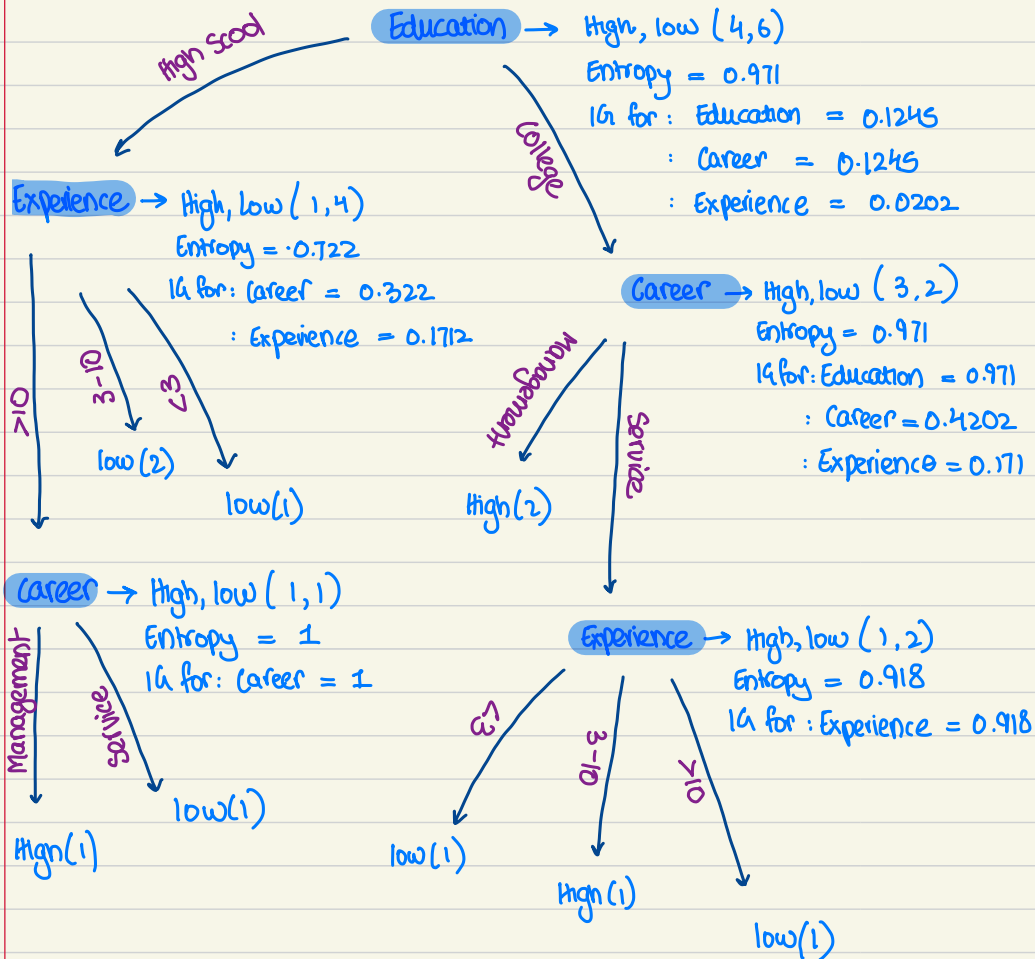 Education → High, low (4,6)
Entropy = 0.971
IG for: Education = 0.1245
: Career = 0.1245
: Experience = 0.0202
High Scool
College
Experience → High, low (1,4)
Entropy = 0.722
IG for: Career = 0.322
: Experience = 0.1712
>10
3-10
<3
low(2)
low(1)
Career → High, low (3,2)
Entropy = 0.971
IG for: Education = 0.971
: Career = 0.4202
: Experience = 0.171
Management
Service
High(2)
Career → High, low (1,1)
Entropy = 1
IG for: Career = 1
Management
Service
High(1)
low(1)
Experience → High, low (1,2)
Entropy = 0.918
IG for: Experience = 0.918
<3
3-10
>10
low(1)
High(1)
low(1)